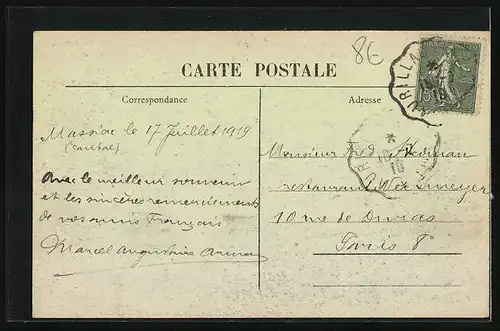 8€
CARTE POSTALE
Correspondance
Adresse
Massiac le 17 Juillet 1919
(Cantal)
Avec le meilleur souvenir
et les sincères remerciements
de vos amis Français
Marcel Augustine
Monsieur Fred
restaurant
10 rue de
Paris 8e
AURILLA
15